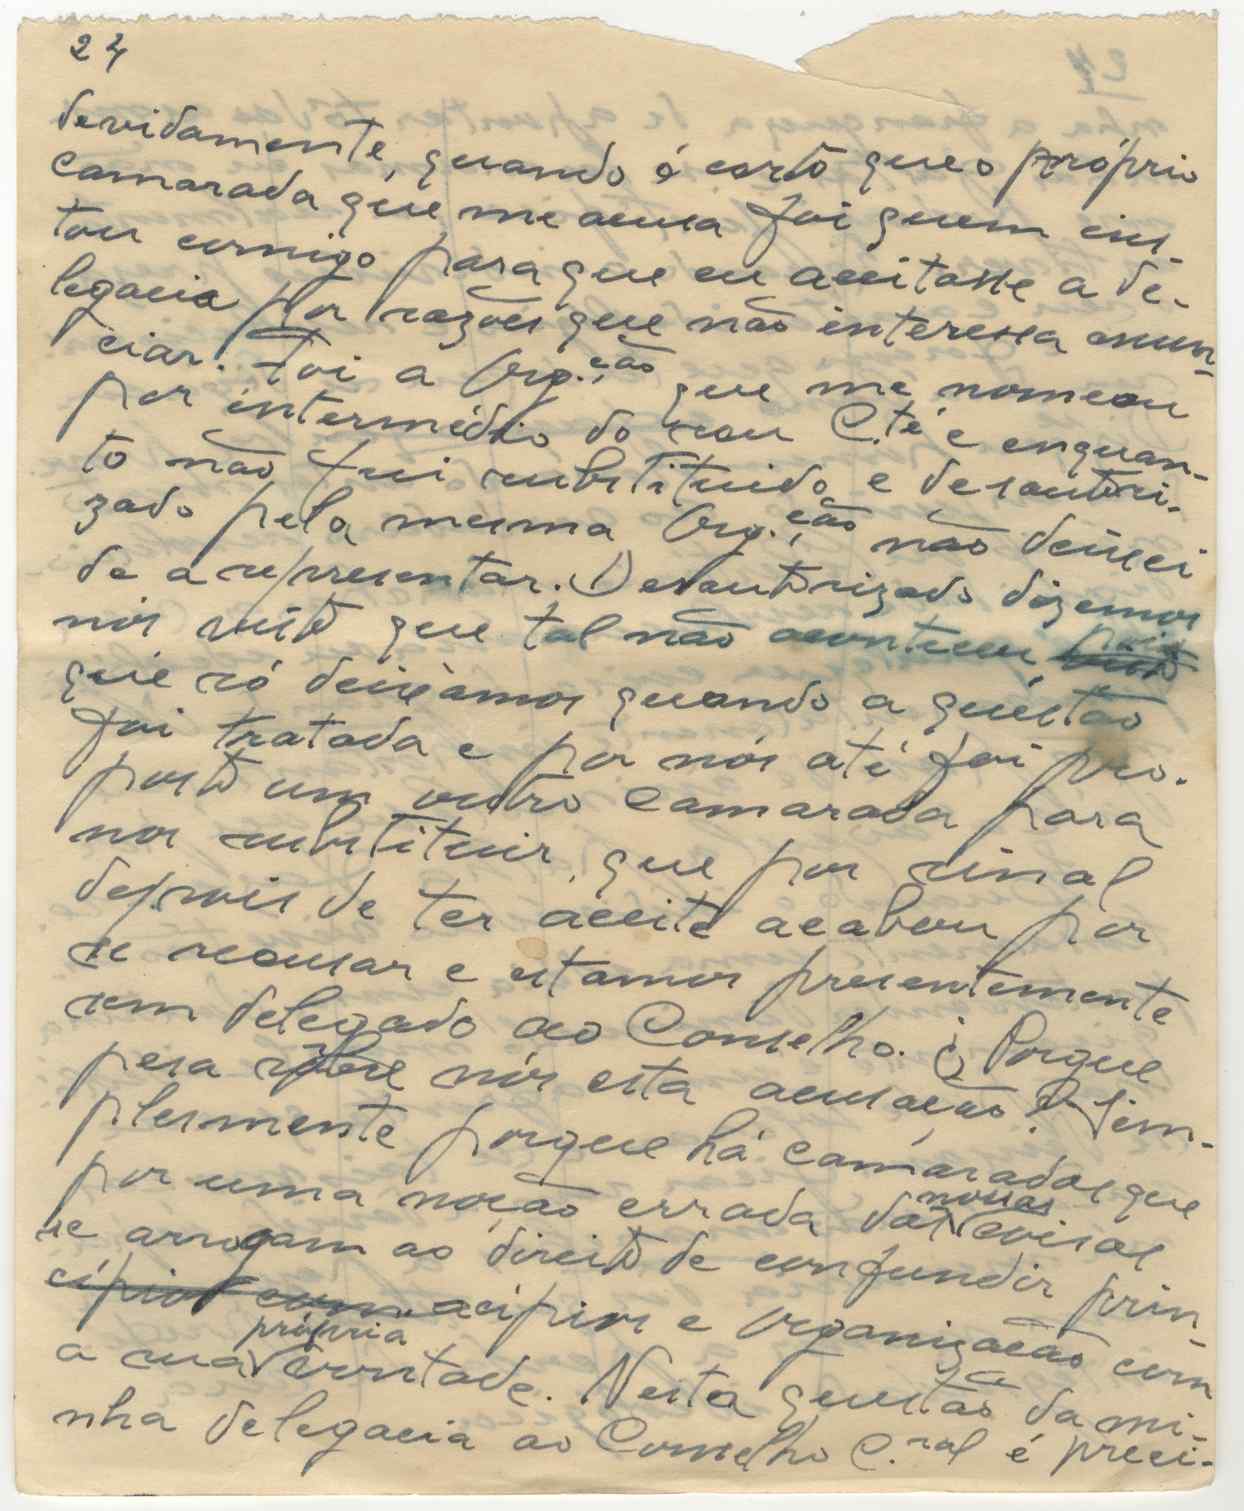 24
devidamente, quando é certo que o próprio
camarada que me acusa foi quem ins-
tou comigo para que eu aceitasse a de-
legacia por razões que não interessa anun-
ciar. Foi a Org.ção que me nomeou
por intermédio do seu C.té e enquan-
to não fui substituido e desautori-
zado pela mesma Org.ção não deixei
de a representar. Desautorizado dizemos
nós visto que tal não aconteceu pois
que só deixàmos quando a questão
foi tratada e por nós até foi pro-
posto um outro camarada para
nos substituir, que por sinal
depois de ter aceite acabou por
se recusar e estamos presentemente
sem delegado ao Conselho. ¿ Porque
pesa sobre nós esta acusação? Sim-
plesmente porque há camaradas que
por uma noção errada das nossas coisas
se arrogam ao direito de confundir prin-
cípios com acípios e organização com
a sua própria vontade. Nesta questão da mi-
nha delegacia ao Conselho G.ral é preci-